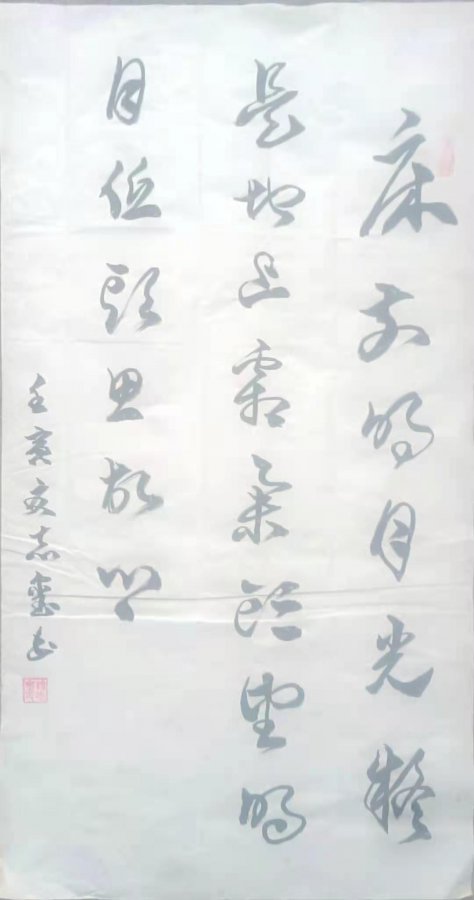 床前明月光疑
是地上霜举头望明
月低头思故乡
壬寅文志玺书